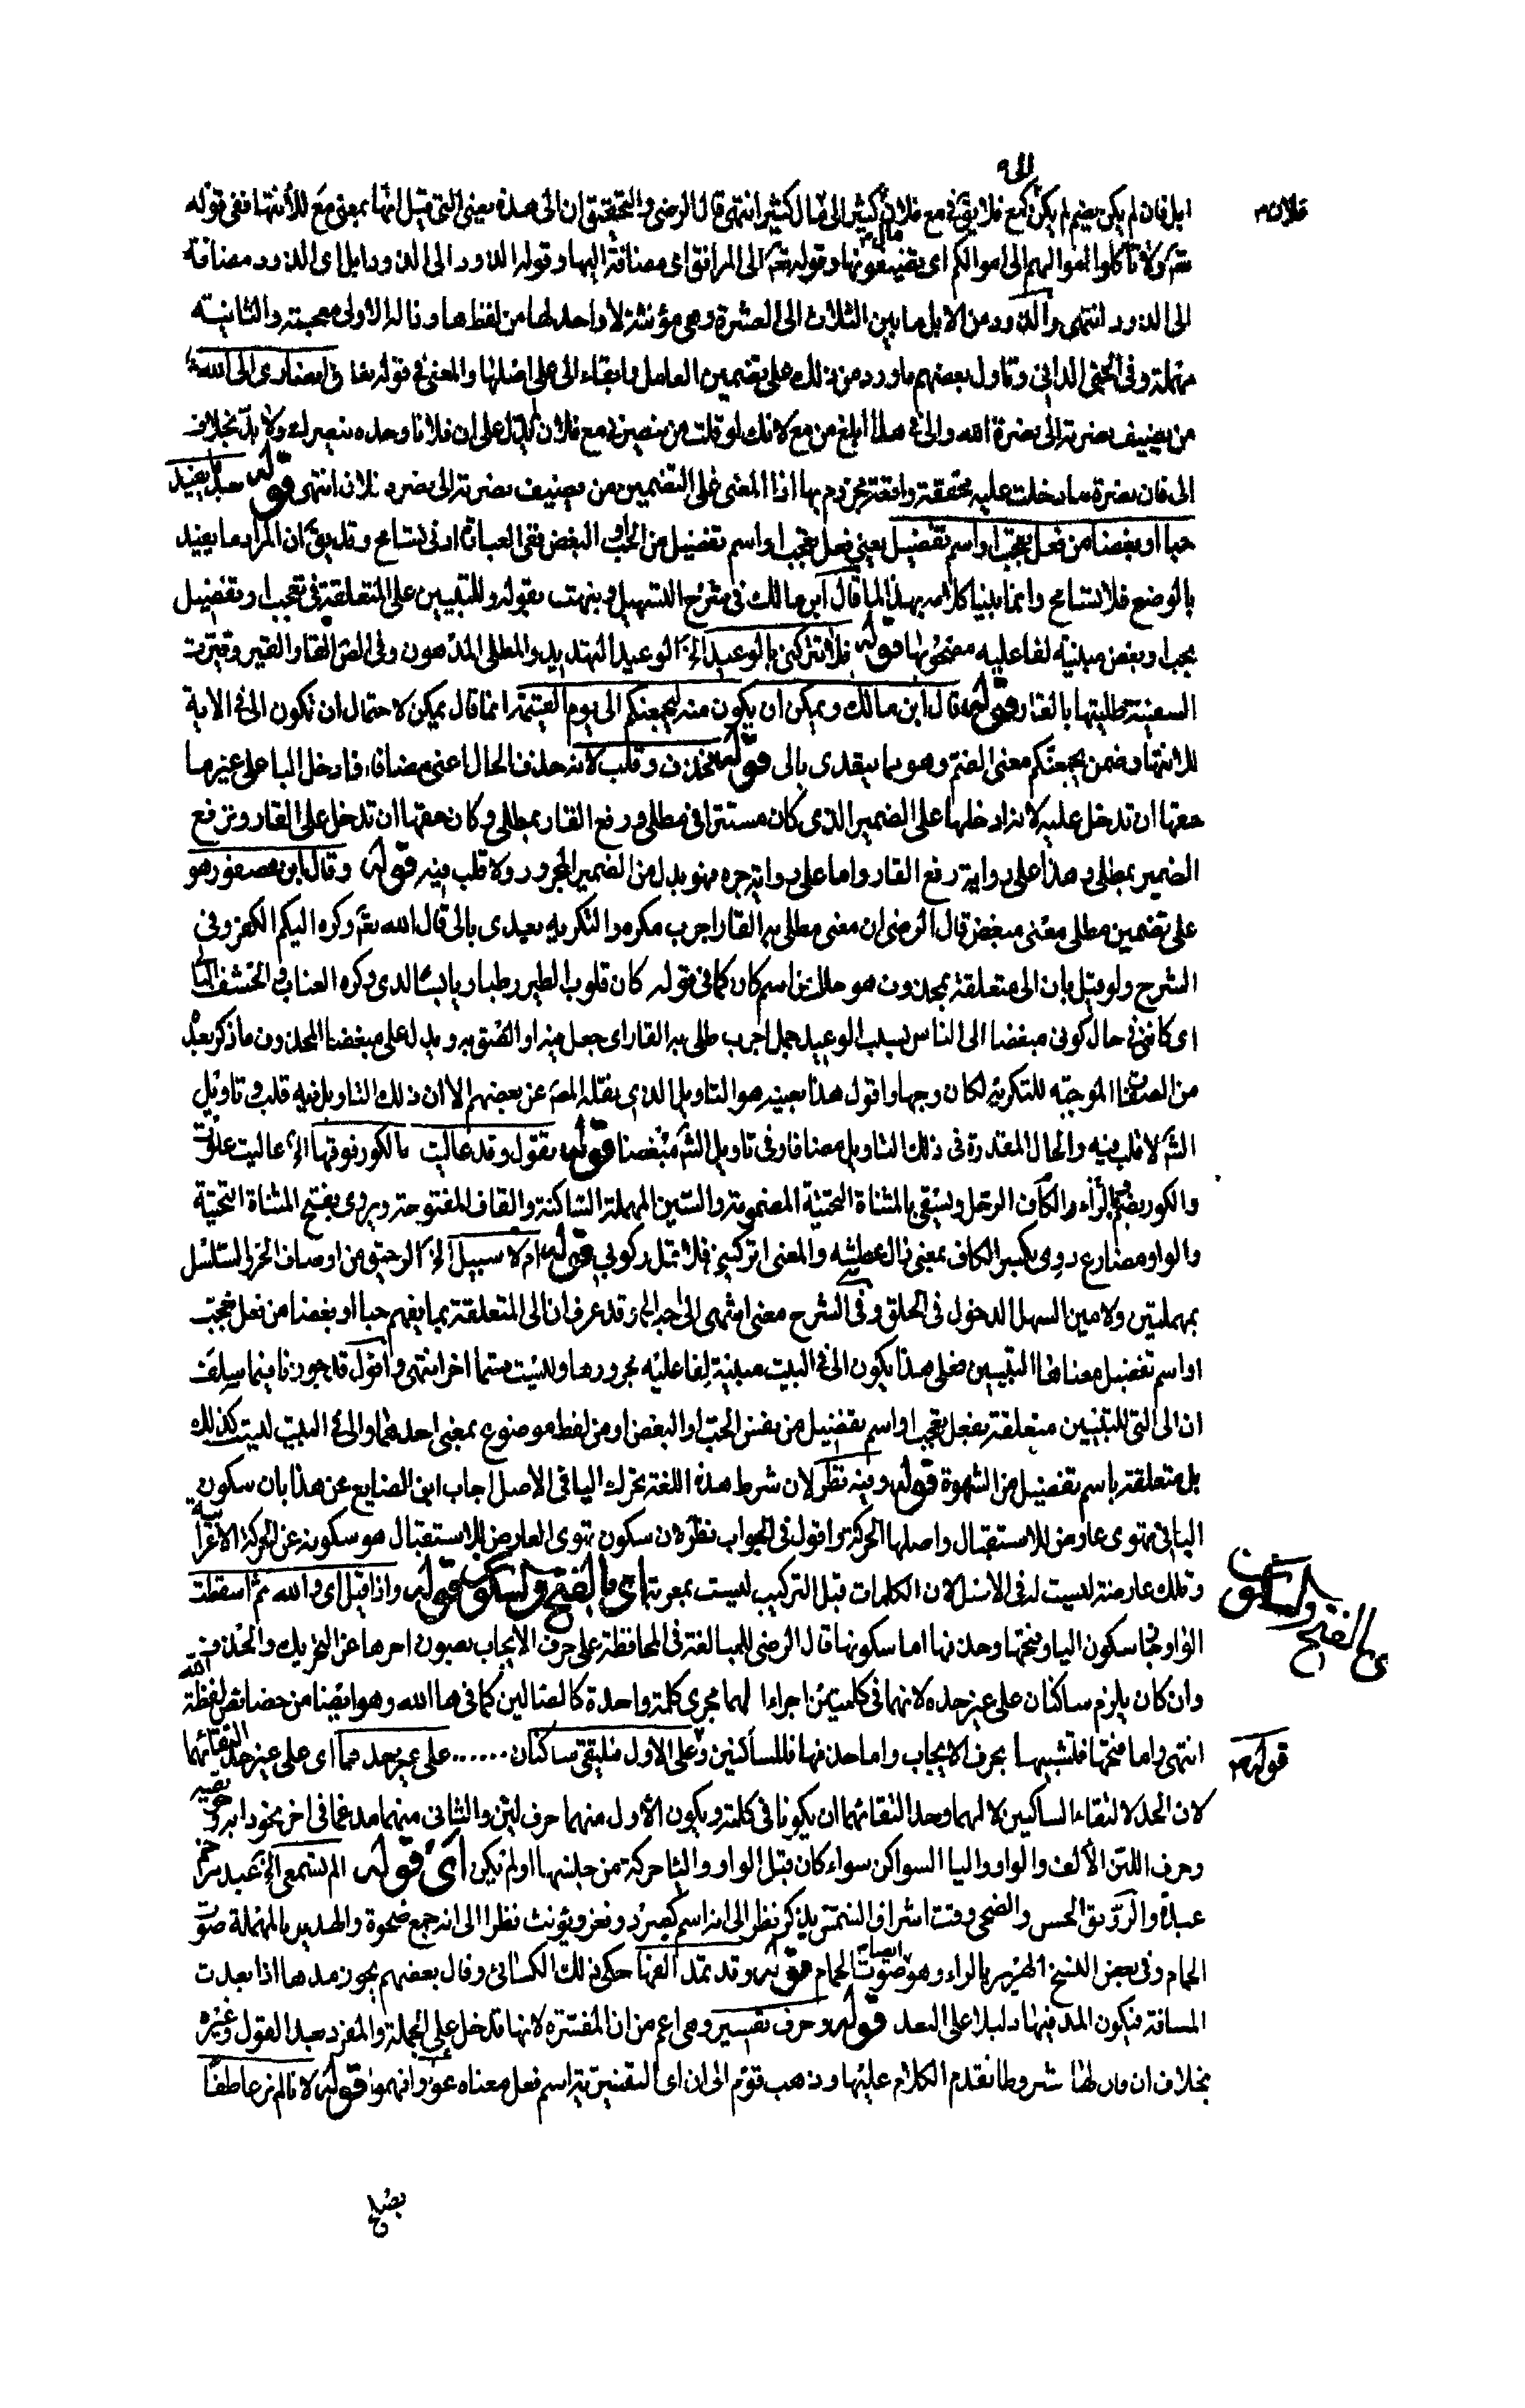 ابل فان لم يكن يضم لم يكن كمع فلا يقَ في مع فلان مال كثير الى فلان مال كثير انتهى قال الرضي والتحقيق ان الى هذه يعني التي قيل انها بمعنى مع للانتهاء ففي قوله
تعَ ولا تأكلوا اموالهم الى اموالكم اى تضيفونها وقوله تعَ الى المرافق اى مضافة اليها وقوله الذود الى الذود ابل اى الذود مضافة
الى الذود انتهى والذود من الابل ما بين الثلاث الى العشرة وهي مؤنثة لا واحد لها من لفظها وذاله الاولى معجمة والثانية
مهملة وفي الجنى الداني وتاول بعضهم ما ورد من ذلك على تضمين العامل وابقاء الى على اصلها والمعنى في قوله تعا من انصارى الى الله
من يضيف نصرته الى نصرة الله والى في هذا ابلغ من مع لانك لو قلت من ينصرني مع فلان لم يدل على ان فلانا وحده ينصرك ولا بد بخلاف
الى فان نصرة ما دخلت عليه محققة واقعة مجزوم بها اذ المعنى على التضمين من يضيف نصرته الى نصرة فلان انتهى قوله بعد ما يفيد
حبا او بغضا من فعل تعجب او اسم تفضيل يعني فعل تعجب او اسم تفضيل من الحب او البغض ففي العبارة ادنى تسامح وقد يقَ ان المراد ما يفيد
بالوضع فلا تسامح وانما بينا كلامه بهذا لما قال ابن مالك في شرح التسهيل ونبهت بقولي وللتبيين على المتعلقة في تعجب او تفضيل
بحب او بغض مبينة لفاعلية مصحوبها قوله فلا تتركني بالوعيد الخ الوعيد التهديد والمطلي المدهون وفي الصحاح القار القير وقيرت
السفينة طليتها بالقار قوله قال ابن مالك ويمكن ان يكون منه ليجمعنكم الى يوم القيمة انما قال يمكن لاحتمال ان تكون الى في الاية
للانتهاء وضمن يجمعنكم معنى الضم وهو مما يتعدى بالى قوله فحذف وقلب لانه حذف الحال اعنى مضافا، فادخل الباء على غير ما
حقها ان تدخل عليه لانه ادخلها على الضمير الذى كان مستترا في مطلى ورفع القار بمطلى وكان حقها ان تدخل على القار وترفع
الضمير بمطلى وهذا على رواية رفع القار واما على رواية جره فهو بدل من الضمير المجرور ولا قلب فيه قوله وقال ابن عصفور هو
على تضمين مطلى معنى مبغض قال الرضي ان معنى مطلى به القار اجرب مكره والتكريه يعدى بالى قال الله تعَ وكره اليكم الكفر وفي
الشرح ولو قيل بان الى متعلقة بمحذوف هو حال من اسم كان كما في قوله كان قلوب الطير رطبا ويابسا لدى وكره العناب والحشف البا
اى كانني في حال كوني مبغضا الى الناس بسبب الوعيد جمل اجرب طلى به القار اى جعل فيه او الصق به ويدل على مبغضا المحذوف ما ذكر بعد
من الصفة الموجبه للتكريه لكان وجها واقول هذا بعينه هو التاويل الذى نقله المصَ عن بعضهم الا ان ذلك التاويل فيه قلب وتاويل
الشَ لا قلب فيه والحال المقدرة في ذلك التاويل مضافا وفي تاويل الشَ مبغضا قوله تقول وقد عاليت بالكور فوقها الخ عاليت علوت
والكور بضم الكاف والراء الرحل ويسقى بالمثناة التحتية المضمومة والسين المهملة الساكنة والقاف المفتوحة ويروى بفتح المثناة التحتية
والواو مضارع روى بكسر الكاف بمعنى زال عطشه والمعنى فلا تمل ركوبي قوله ام لا سبيل الخ الرحيق من اوصاف الخمر والسلسل
بمهملتين ولامين السهل الدخول في الحلق وفي الشرح معنى اشهى الى احب الى وقد عرف ان الى المتعلقة بما يفهم حبا او بغضا من فعل تعجب
او اسم تفضيل معناها التبيين فعلى هذا يكون الى في البيت مبينة لفاعلية مجرورها وليست قسما اخر انتهى واقول قد جوزنا فيما سلف
ان الى التي للتبيين متعلقة بفعل تعجب او اسم تفضيل من نفس الحب او البغض او من لفظ موضوع بمعنى احدهما والى في البيت ليست كذلك
بل متعلقة باسم تفضيل من الشهوة قوله وفيه نظر لان شرط هذه اللغة تحرك اليا في الاصل اجاب ابن الصايغ عن هذا بان سكون
اليا في تهوى عارض للاستقبال واصلها الحركة واقول في الجواب نظر لان سكون تهوى العارض للاستقبال هو سكونه عن الحركة الاعرابية
وتلك عارضة ليست له في الاصل لان الكلمات قبل التركيب ليست بمعربة اى بالفتح والسكون قوله واذا قيل اى والله ثم اسقطت
الواو جاز سكون اليا وفتحها وحذفها اما سكونها قال الرضي للمبالغة في المحافظة على حرف الايجاب بصون اخرها عن التحريك والحذف
وان كان يلزم ساكنان على غير حده لانهما في كلمتين اجراءا لهما مجرى كلمة واحدة كالضالين كما في ها الله وهو ايضا من خصائص لفظة الله
انتهى واما فتحها فلتشبيهها بحرف الايجاب واما حذفها فللساكنين قوله وعلى الاول فيلتقى ساكنان ...... على غير حدهما اى على غير حد التقائهما
لان الحد لالتقاء الساكنين لا لهما وحد التقائهما ان يكونا في كلمة ويكون الاول منهما حرف لين والثاني منهما مدغما في اخر نحو دابة وخويصة
وحرف اللين الالف والواو واليا السواكن سواء كان قبل الواو واليا حركة من جنسها او لم يكن أىْ قوله الم تسمعى اى عبد مرخم
عبدة والرونق الحسن والضحى وقت اشراق الشمس يذكر نظرا الى انه اسم كصرد ونغر ويؤنث نظرا الى انه جمع ضحوة والهديل بالمهملة صوت
الحمام وفي بعض النسخ الهدير بالراء وهو ايضا صوت الحمام قوله وقد تمد الفها حكى ذلك الكسائي وقال بعضهم يجوز مدها اذا بعدت
المسافة فيكون المد فيها دليلا على البعد قوله وحرف تفسير وهي اعم من ان المفسرة لانها تدخل على الجملة والمفرد بعد القول وغيره
بخلاف ان فان لها شروطا تقدم الكلام عليها وذهب قوم الى ان اى التفسيرية اسم فعل معناه عوا وافهموا قوله لانا لم نر عاطفا
فلان
اى بالفتح والسكون
قوله
يصلح